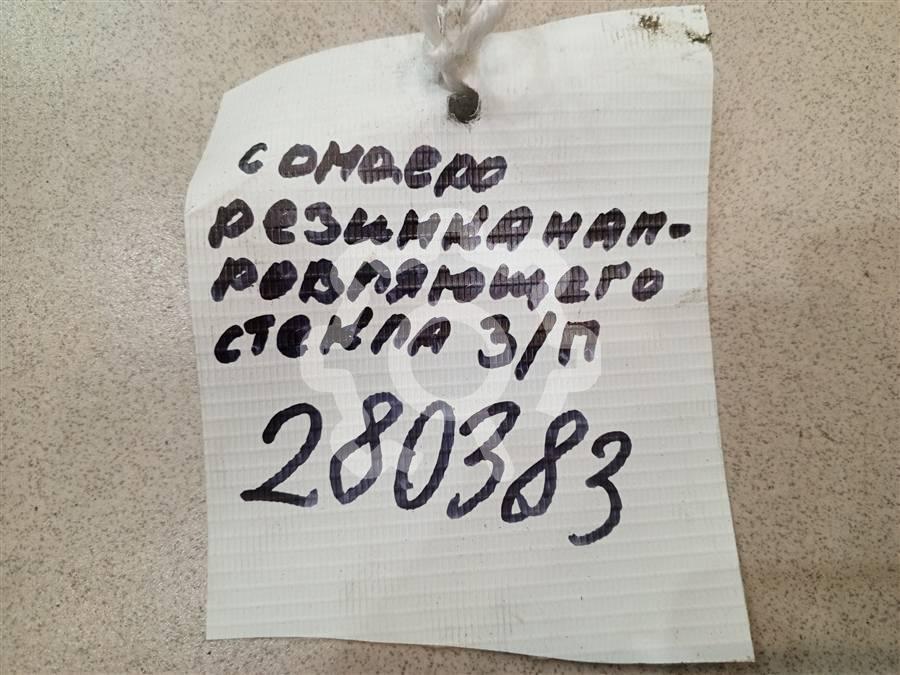 сондеро
резинка нап-
ровляющего
стекла з/п
280383